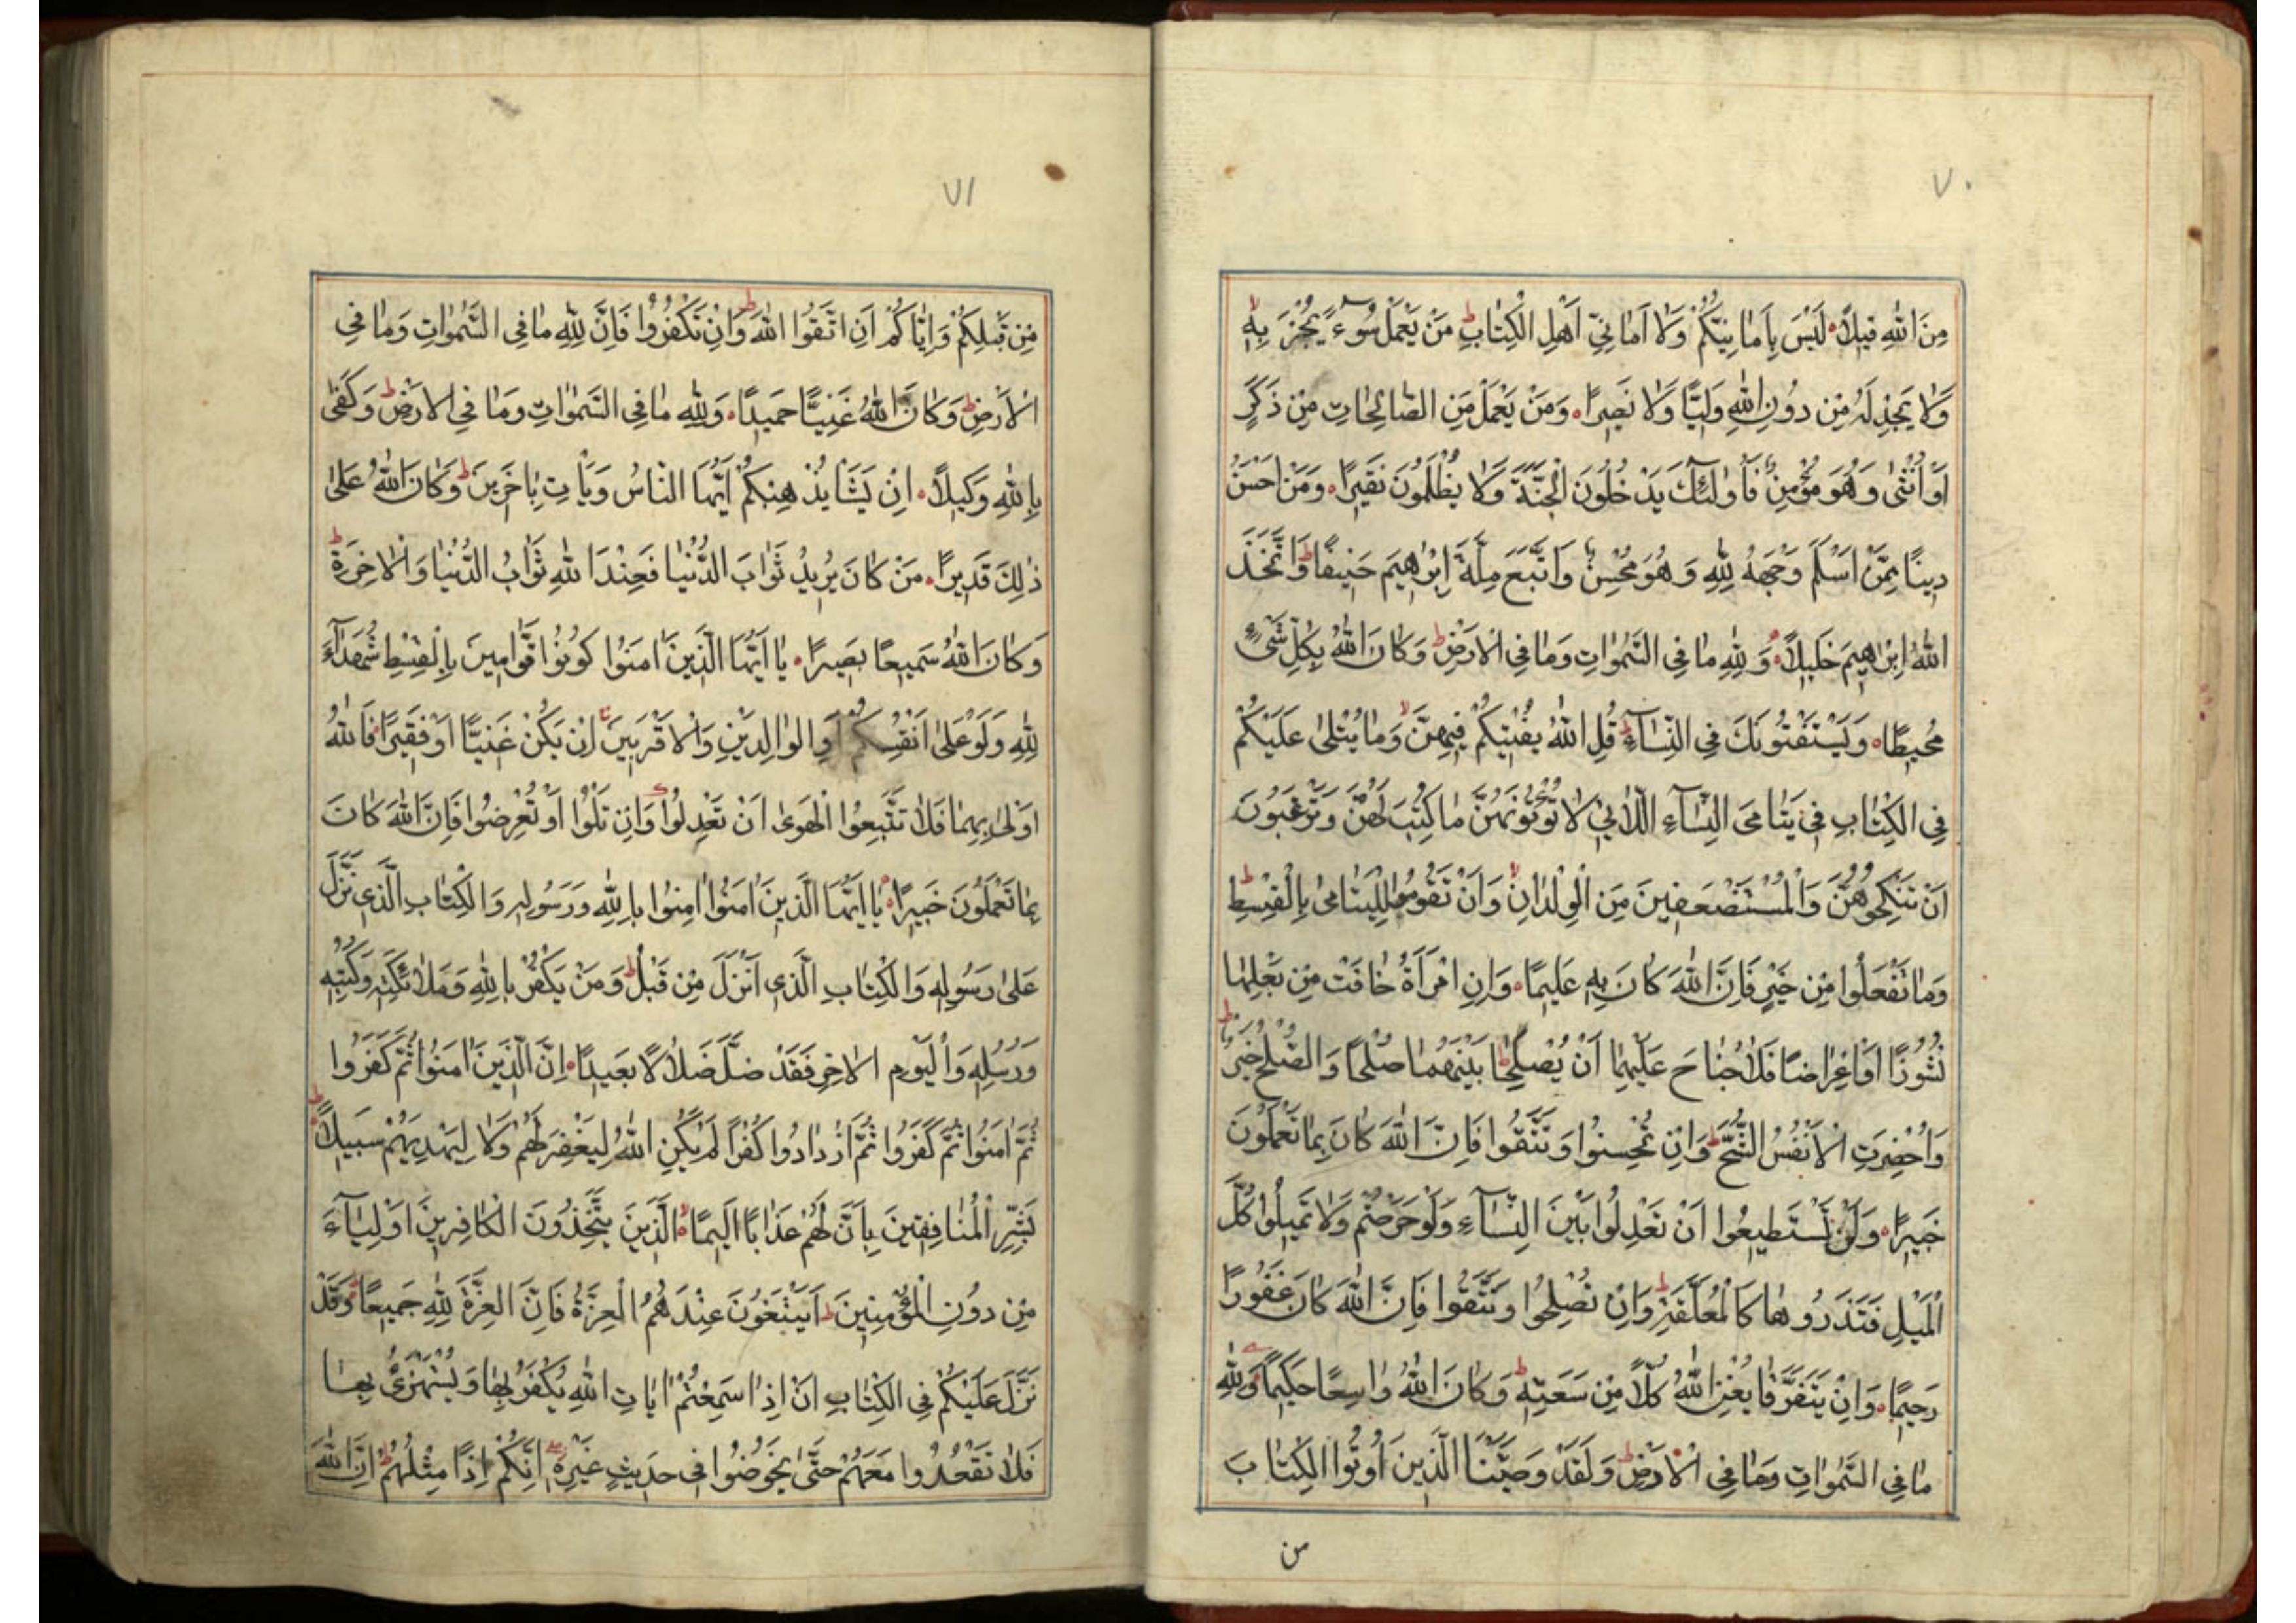 ٧٠
مِنَ اللّٰهِ قِيلًا لَيْسَ بِاَمَانِيِّكُمْ وَلَا اَمَانِيِّ اَهْلِ الْكِتَابِ ط مَنْ يَعْمَلْ سُوءً يُجْزَ بِهٖ لا
وَلَا يَجِدْ لَهُ مِنْ دُونِ اللّٰهِ وَلِيًّا وَلَا نَصِيرًا وَمَنْ يَعْمَلْ مِنَ الصَّالِحَاتِ مِنْ ذَكَرٍ
اَوْ اُنْثٰى وَهُوَ مُؤْمِنٌ فَاُولٰئِكَ يَدْخُلُونَ الْجَنَّةَ وَلَا يُظْلَمُونَ نَقِيرًا وَمَنْ اَحْسَنُ
دِينًا مِمَّنْ اَسْلَمَ وَجْهَهُ لِلّٰهِ وَهُوَ مُحْسِنٌ وَاتَّبَعَ مِلَّةَ اِبْرٰاهِيمَ حَنِيفًا ط وَاتَّخَذَ
اللّٰهُ اِبْرٰاهِيمَ خَلِيلًا وَلِلّٰهِ مَا فِى السَّمٰوَاتِ وَمَا فِى الْاَرْضِ ط وَكَانَ اللّٰهُ بِكُلِّ شَىْءٍ
مُحِيطًا وَيَسْتَفْتُونَكَ فِى النِّسَآءِ ط قُلِ اللّٰهُ يُفْتِيكُمْ فِيهِنَّ لا وَمَا يُتْلٰى عَلَيْكُمْ
فِى الْكِتَابِ فِى يَتَامَى النِّسَآءِ اللَّاتِى لَا تُؤْتُونَهُنَّ مَا كُتِبَ لَهُنَّ وَتَرْغَبُونَ
اَنْ تَنْكِحُوهُنَّ وَالْمُسْتَضْعَفِينَ مِنَ الْوِلْدَانِ لا وَاَنْ تَقُومُوا لِلْيَتَامٰى بِالْقِسْطِ ط
وَمَا تَفْعَلُوا مِنْ خَيْرٍ فَاِنَّ اللّٰهَ كَانَ بِهٖ عَلِيمًا وَاِنِ امْرَاَةٌ خَافَتْ مِنْ بَعْلِهَا
نُشُوزًا اَوْ اِعْرَاضًا فَلَا جُنَاحَ عَلَيْهِمَا اَنْ يُصْلِحَا بَيْنَهُمَا صُلْحًا وَالصُّلْحُ خَيْرٌ ط
وَاُحْضِرَتِ الْاَنْفُسُ الشُّحَّ ط وَاِنْ تُحْسِنُوا وَتَتَّقُوا فَاِنَّ اللّٰهَ كَانَ بِمَا تَعْمَلُونَ
خَبِيرًا وَلَنْ تَسْتَطِيعُوا اَنْ تَعْدِلُوا بَيْنَ النِّسَآءِ وَلَوْ حَرَصْتُمْ وَلَا تَمِيلُوا كُلَّ
الْمَيْلِ فَتَذَرُوهَا كَالْمُعَلَّقَةِ ط وَاِنْ تُصْلِحُوا وَتَتَّقُوا فَاِنَّ اللّٰهَ كَانَ غَفُورًا
رَحِيمًا وَاِنْ يَتَفَرَّقَا يُغْنِ اللّٰهُ كُلًّا مِنْ سَعَتِهٖ ط وَكَانَ اللّٰهُ وَاسِعًا حَكِيمًا وَلِلّٰهِ
مَا فِى السَّمٰوَاتِ وَمَا فِى الْاَرْضِ ط وَلَقَدْ وَصَّيْنَا الَّذِينَ اُوتُوا الْكِتَابَ
من
٧١
مِنْ قَبْلِكُمْ وَاِيَّاكُمْ اَنِ اتَّقُوا اللّٰهَ ط وَاِنْ تَكْفُرُوا فَاِنَّ لِلّٰهِ مَا فِى السَّمٰوَاتِ وَمَا فِى
الْاَرْضِ ط وَكَانَ اللّٰهُ غَنِيًّا حَمِيدًا وَلِلّٰهِ مَا فِى السَّمٰوَاتِ وَمَا فِى الْاَرْضِ ط وَكَفٰى
بِاللّٰهِ وَكِيلًا اِنْ يَشَأْ يُذْهِبْكُمْ اَيُّهَا النَّاسُ وَيَأْتِ بِاٰخَرِينَ ط وَكَانَ اللّٰهُ عَلٰى
ذٰلِكَ قَدِيرًا مَنْ كَانَ يُرِيدُ ثَوَابَ الدُّنْيَا فَعِنْدَ اللّٰهِ ثَوَابُ الدُّنْيَا وَالْاٰخِرَةِ ط
وَكَانَ اللّٰهُ سَمِيعًا بَصِيرًا يَا اَيُّهَا الَّذِينَ اٰمَنُوا كُونُوا قَوَّامِينَ بِالْقِسْطِ شُهَدَآءَ
لِلّٰهِ وَلَوْ عَلٰى اَنْفُسِكُمْ اَوِ الْوَالِدَيْنِ وَالْاَقْرَبِينَ اِنْ يَكُنْ غَنِيًّا اَوْ فَقِيرًا فَاللّٰهُ
اَوْلٰى بِهِمَا فَلَا تَتَّبِعُوا الْهَوٰى اَنْ تَعْدِلُوا وَاِنْ تَلْوُوا اَوْ تُعْرِضُوا فَاِنَّ اللّٰهَ كَانَ
بِمَا تَعْمَلُونَ خَبِيرًا يَا اَيُّهَا الَّذِينَ اٰمَنُوا اٰمِنُوا بِاللّٰهِ وَرَسُولِهٖ وَالْكِتَابِ الَّذِى نَزَّلَ
عَلٰى رَسُولِهٖ وَالْكِتَابِ الَّذِى اَنْزَلَ مِنْ قَبْلُ ط وَمَنْ يَكْفُرْ بِاللّٰهِ وَمَلَائِكَتِهٖ وَكُتُبِهٖ
وَرُسُلِهٖ وَالْيَوْمِ الْاٰخِرِ فَقَدْ ضَلَّ ضَلَالًا بَعِيدًا اِنَّ الَّذِينَ اٰمَنُوا ثُمَّ كَفَرُوا
ثُمَّ اٰمَنُوا ثُمَّ كَفَرُوا ثُمَّ ازْدَادُوا كُفْرًا لَمْ يَكُنِ اللّٰهُ لِيَغْفِرَ لَهُمْ وَلَا لِيَهْدِيَهُمْ سَبِيلًا ط
بَشِّرِ الْمُنَافِقِينَ بِاَنَّ لَهُمْ عَذَابًا اَلِيمًا لا الَّذِينَ يَتَّخِذُونَ الْكَافِرِينَ اَوْلِيَآءَ
مِنْ دُونِ الْمُؤْمِنِينَ ط اَيَبْتَغُونَ عِنْدَهُمُ الْعِزَّةَ فَاِنَّ الْعِزَّةَ لِلّٰهِ جَمِيعًا وَقَدْ
نَزَّلَ عَلَيْكُمْ فِى الْكِتَابِ اَنْ اِذَا سَمِعْتُمْ اٰيَاتِ اللّٰهِ يُكْفَرُ بِهَا وَيُسْتَهْزَئُ بِهَا
فَلَا تَقْعُدُوا مَعَهُمْ حَتّٰى يَخُوضُوا فِى حَدِيثٍ غَيْرِهٖ اِنَّكُمْ اِذًا مِثْلُهُمْ ط اِنَّ اللّٰهَ